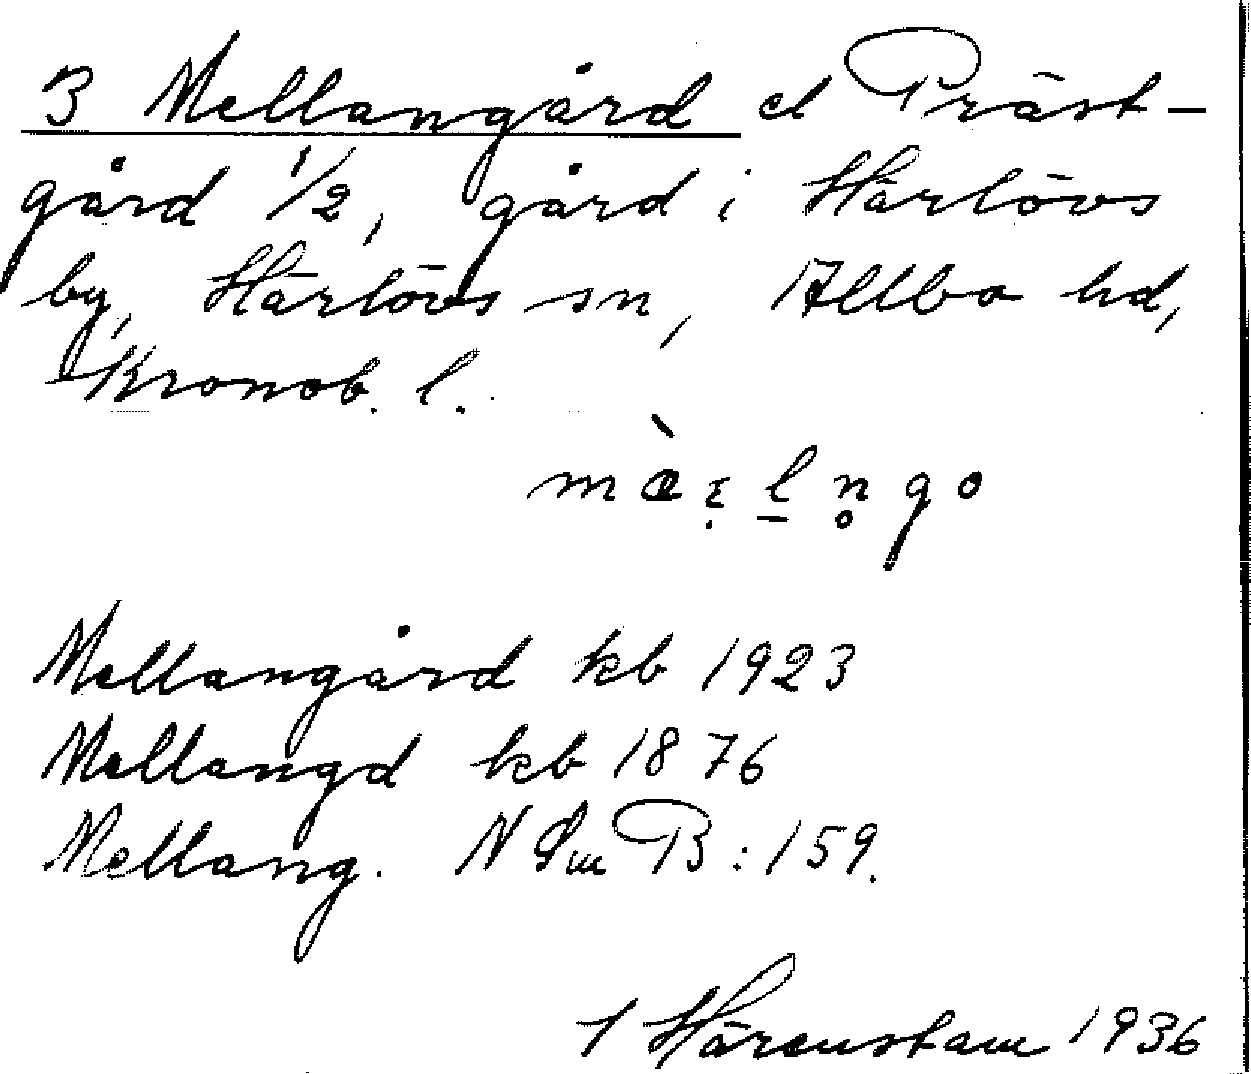 3 Mellangård el Präst-
gård 1/2, gård i Härlövs
by, Härlövs sn, Allbo hd,
Kronob. l.
Mellangård kb 1923
Mellangd kb 1876
Mellang. N Sm B: 159.
Härenstam 1936